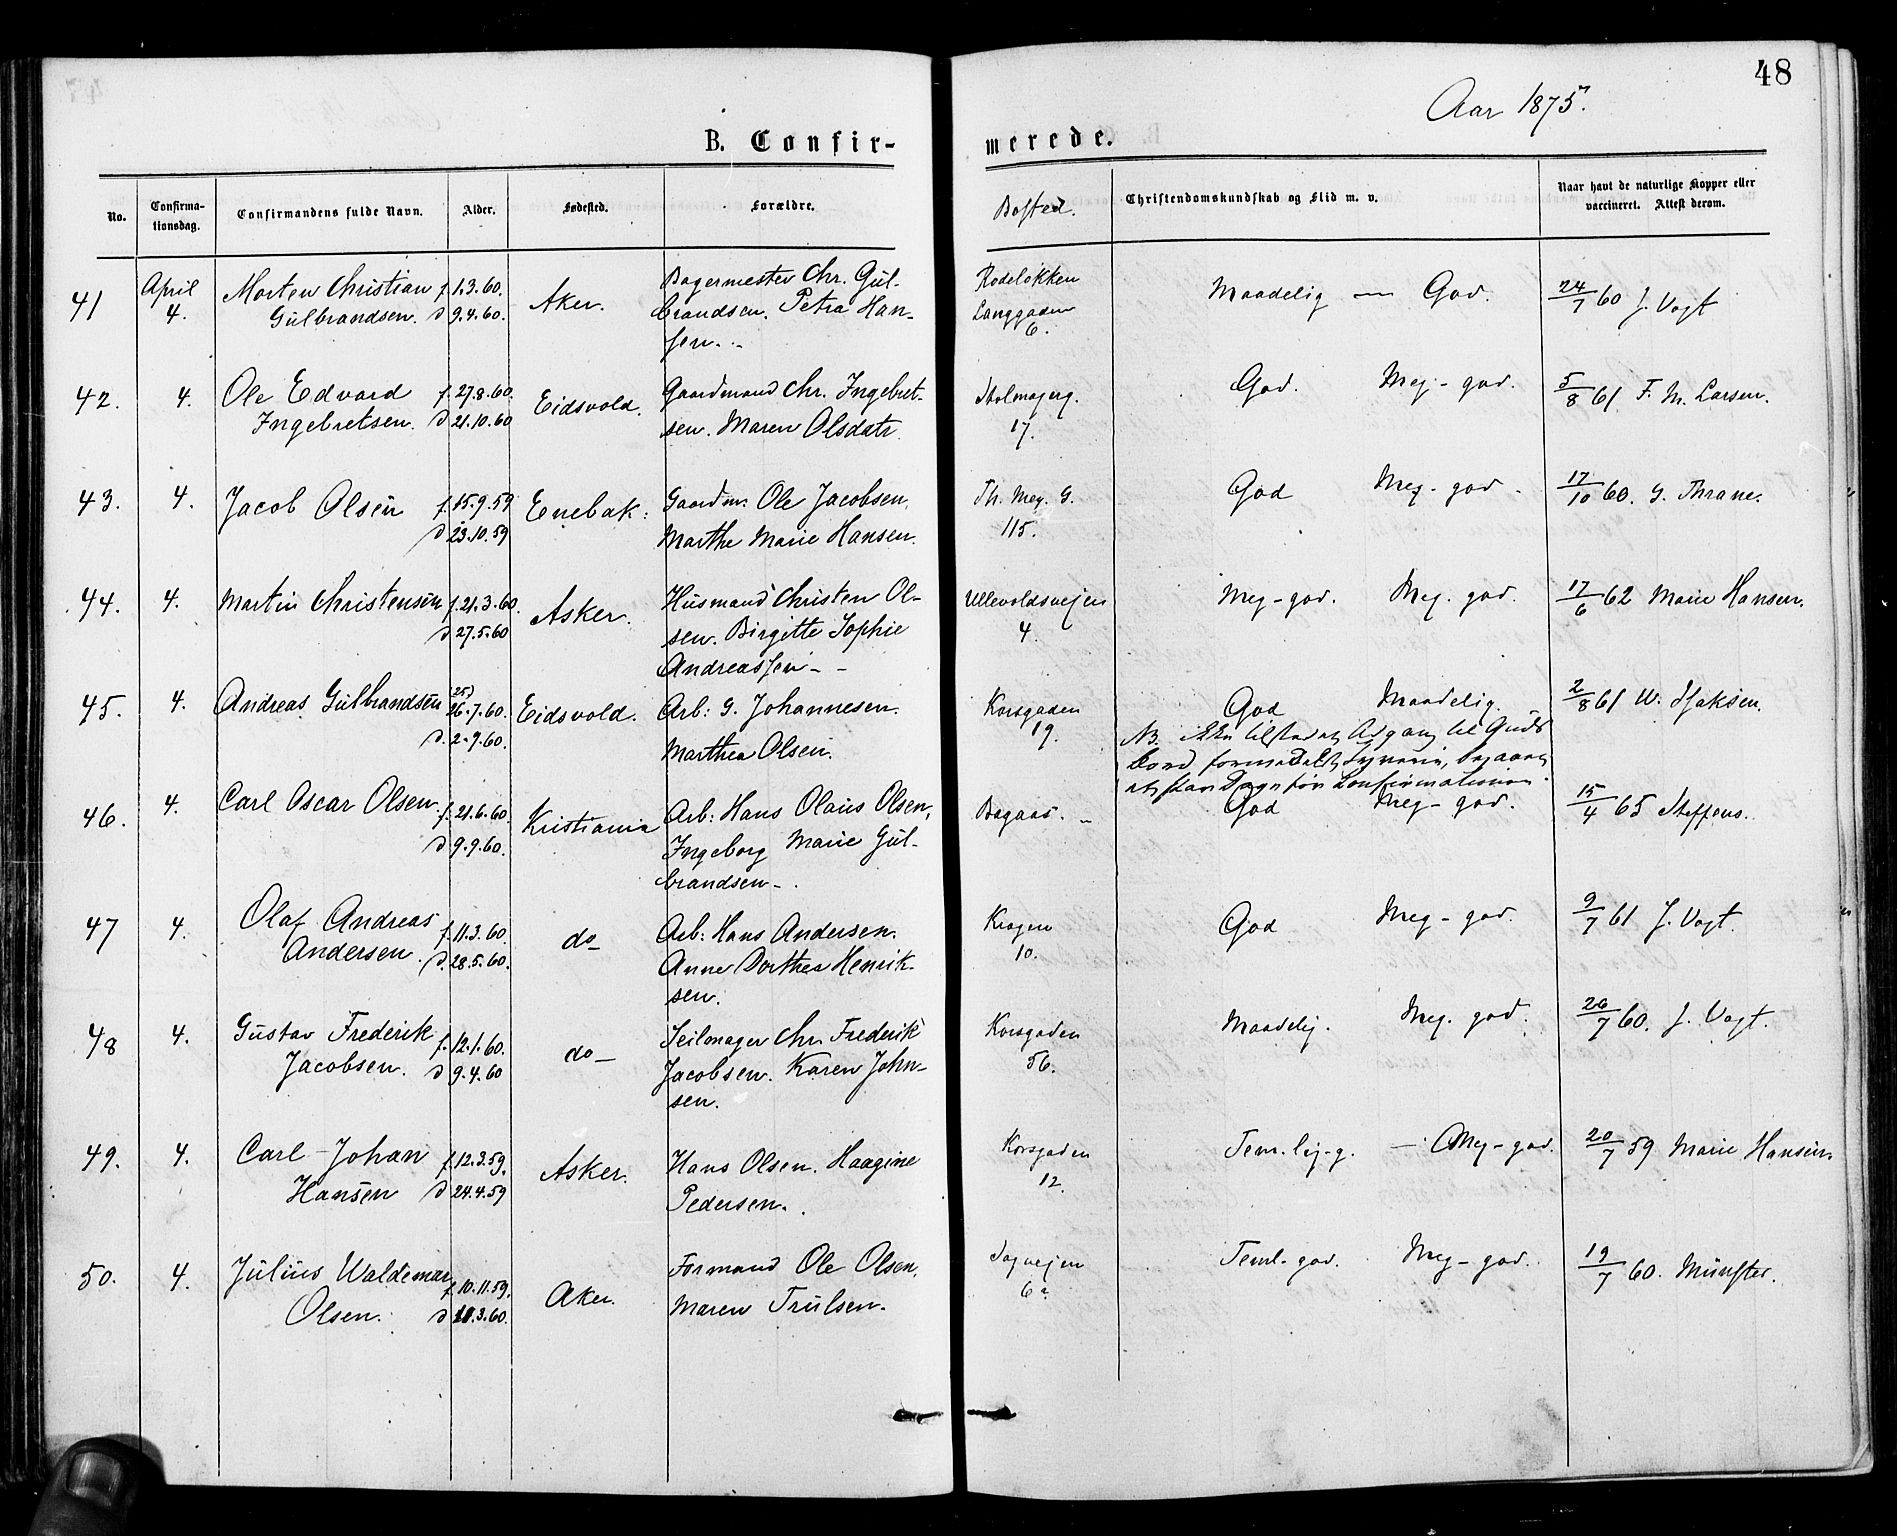 48
Aar 1875.
B. Confir-
merede.
No.
Confirma-
tionsdag.
Confirmandens fulde Navn.
Alder.
Fødested.
Forældre.
Bosted.
Christendomskundskab og Flid m. v.
Naar havt de naturlige Kopper eller
vaccineret. Attest derom.
41 April 4. Morten Christian Gulbrandsen. f. 1.3.60. d 9.4.60. Aker. Bagermester Chr. Gul-
brandsen. Petra Han-
sen.
Rodeløkken
Langgaden
6.
Maadelig — God. 24/7 60 J. Vogt
42. 4. Ole Edvard Ingebretsen. f. 27.8.60. d 21.10.60 Eidsvold. Gaardmand Chr. Ingebret-
sen. Maren Olsdatr.
Stolmagerg.
17.
God. Meg-god. 5/8 61 F. M. Larsen.
43. 4. Jacob Olsen f. 15.9.59 d 23.10.59 Enebak: Gaardm: Ole Jacobsen.
Marthe Marie Hansen.
Th. Mey. G.
115.
God Meg-god. 17/10 60. G. Thrane.
44. 4. Martin Christensen f. 21.3.60. d 27.5.60 Asker. Husmand Christen Ol-
sen. Birgitte Sophie
Andreassen
Ullevoldsvejen
4.
Meg-god. Meg. god. 17/6 62 Marie Hansen.
45. 4. Andreas Gulbrandsen 25) 26.7.60. d. 2.9.60. Eidsvold. Arb: G. Johannesen.
Marthea Olsen.
Korsgaden
19.
God Maadelig. 2/8 61 W. Isaksen.
NB. Ikke tilstedet Adgang til Guds
Bord formedelst
Confirmationen.
46. 4. Carl Oscar Olsen. f. 21.6.60. d 9.9.60. Kristiania Arb: Hans Olaus Olsen,
Ingeborg Marie Gul-
brandsen
Bagaas.
God Meg-god. 15/4 65 Steffens.
47 4. Olaf Andreas Andersen. f. 11.3.60. d. 28.5.60. do Arb: Hans Andersen.
Anne Dorthea Henrik-
sen.
Krogen
10.
God Meg-god. 9/7 61 J. Vogt.
48 4. Gustav Frederik Jacobsen. f. 12.1.60. d 9.4.60 do Seilmager Chr. Frederik
Jacobsen. Karen John-
sen.
Korsgaden
56.
Maadelig. Meg. god. 26/7 60. J. Vogt.
49. 4. Carl Johan Hansen f. 12.3.59. d 24.4.59 Asker. Hans Olsen. Haagine
Pedersen.
Korsgaden
12.
Tem.lig-g. — Meg-god. 20/7 59 Marie Hansen.
50. 4. Julius Waldemar Olsen. f. 10.11.59. d 11.3.60. Aker. Formand Ole Olsen,
Maren Trulsen.
Sagvejen
6a
Teml-god. Meg-god. 19/7 60. Münster.